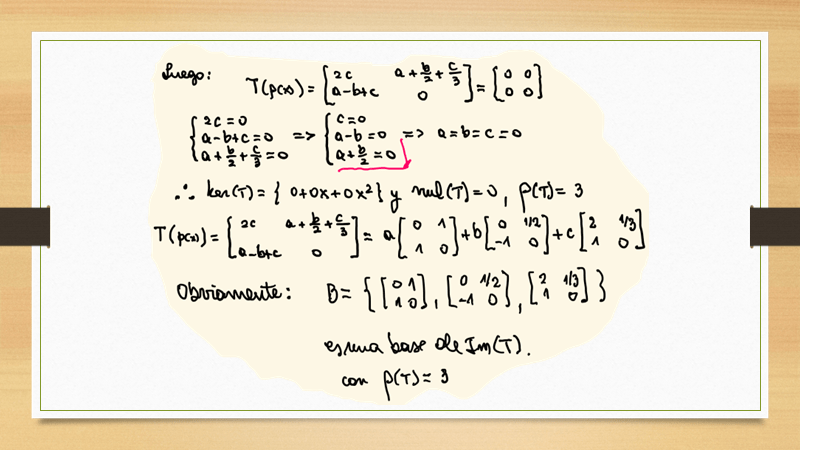 Luego: T(p(x)) = [2c a + b/2 + c/3; a-b+c 0] = [0 0; 0 0]
{2c=0; a-b+c=0; a + b/2 + c/3 = 0 => {c=0; a-b=0; a + b/2 = 0 => a=b=c=0
∴ ker(T) = {0+0x+0x²} y nul(T)=0, ρ(T)=3
T(p(x)) = [2c a + b/2 + c/3; a-b+c 0] = a[0 1; 1 0] + b[0 1/2; -1 0] + c[2 1/3; 1 0]
Obviamente: B = {[0 1; 1 0], [0 1/2; -1 0], [2 1/3; 1 0]}
es una base de Im(T).
con ρ(T) = 3